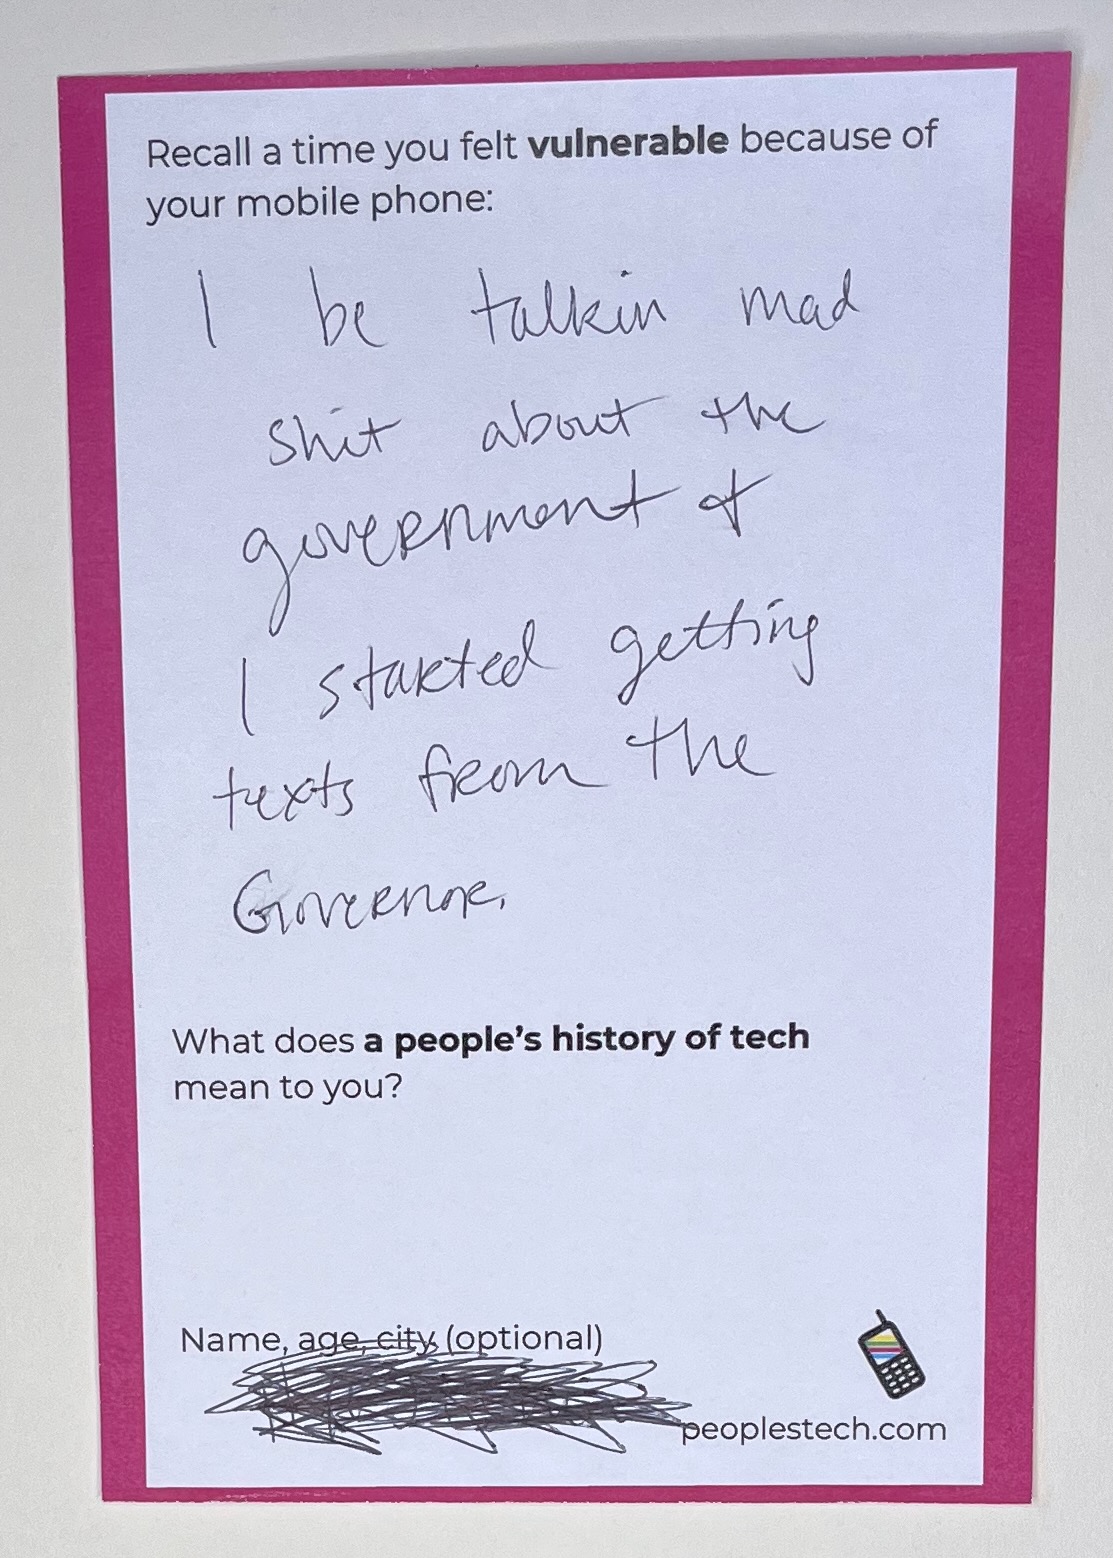 Recall a time you felt vulnerable because of
your mobile phone:
I be talkin mad
shit about the
government &
I started getting
texts from the
Governor.
What does a people's history of tech
mean to you?
Name, age, city, (optional)
peoplestech.com